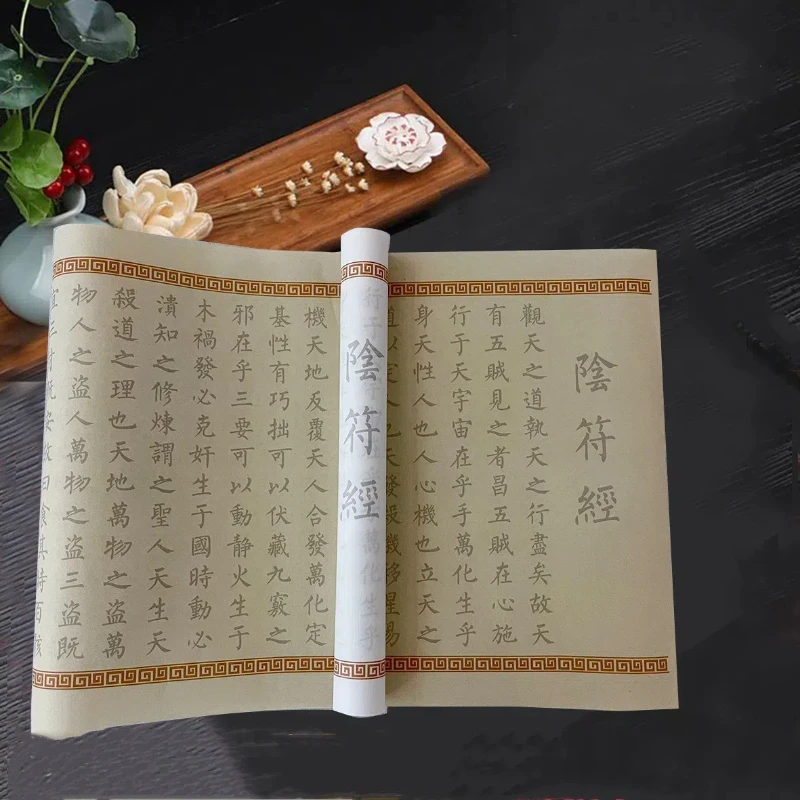 陰符經
觀天之道執天之行盡矣故天
有五賊見之者昌五賊在心施
行于天宇宙在乎手萬化生乎
身天性人也人心機也立天之
以定人也天發殺機移星易
陰符經
機天地反覆天人合發萬化定
基性有巧拙可以伏藏九竅之
邪在乎三要可以動静火生于
木禍發必克奸生于國時動必
潰知之修煉謂之聖人天生天
殺道之理也天地萬物之盜萬
物人之盜人萬物之盜三盜既
三才既安故曰食其時百骸